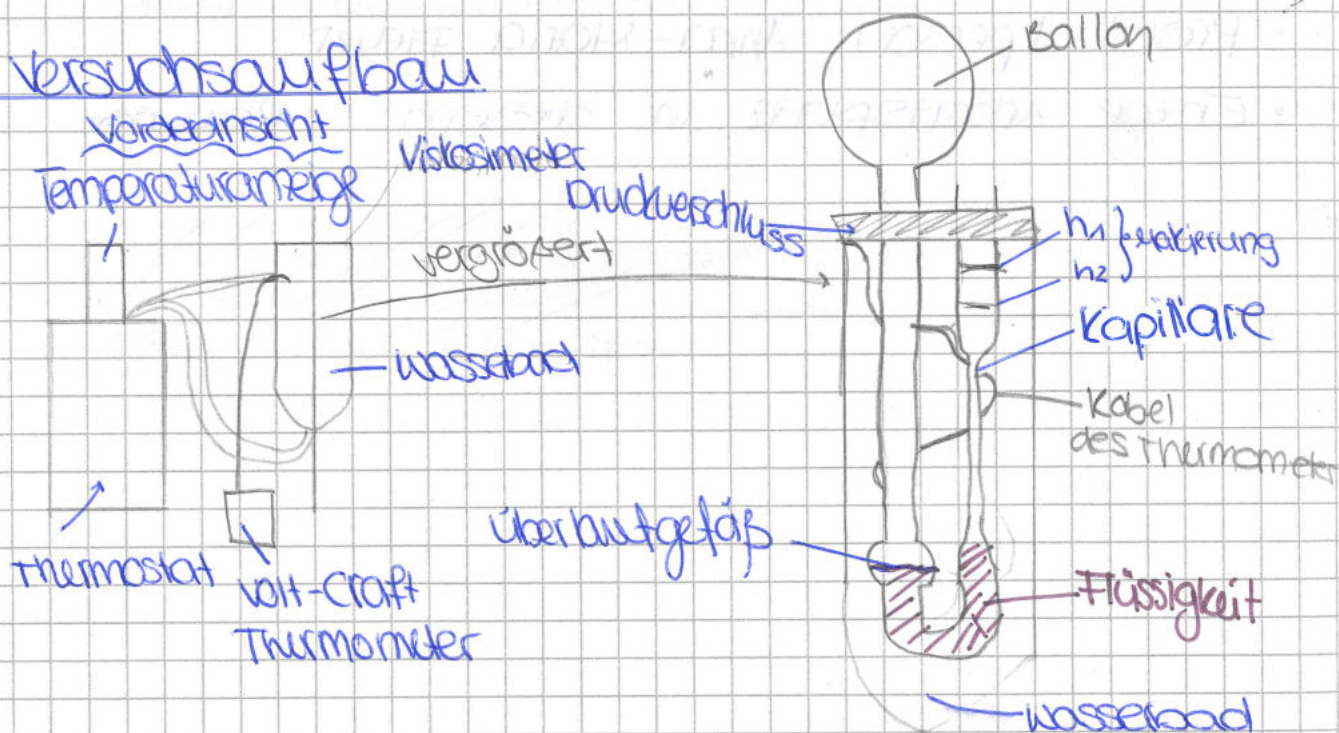 Versuchsaufbau
Vorderansicht
Temperaturanzeige
Viskosimeter
vergrößert
Wasserbad
Thermostat
Volt-Craft
Thermometer
Ballon
Druckverschluss
h1
h2
Kapillare
Kabel
des Thermometer
Überlaufgefäß
Flüssigkeit
Wasserbad